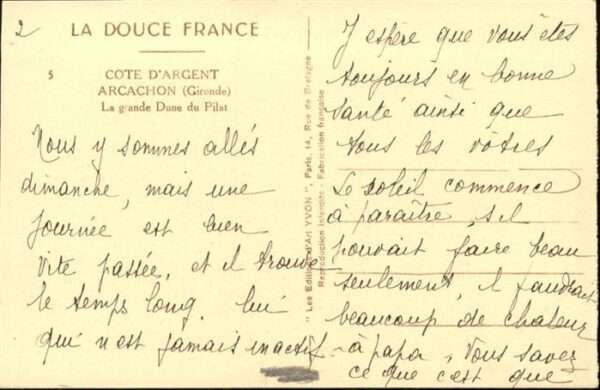 2
LA DOUCE FRANCE
5
COTE D'ARGENT
ARCACHON (Gironde)
La grande Dune du Pilat
Nous y sommes allés
dimanche, mais une
journée est bien
vite passée, et il trouve
le temps long. lui
qui n'est jamais inactif.
"Les Editions d'Art YVON", Paris, 14, Rue de Bretagne
Reproduction Interdite - Fabrication française
J espère que vous êtes
toujours en bonne
santé ainsi que
tous les vôtres
Le soleil commence
à paraître, s'il
pouvait faire beau
seulement, il faudrait
beaucoup de chaleur
à papa, Vous savez
ce que c'est que